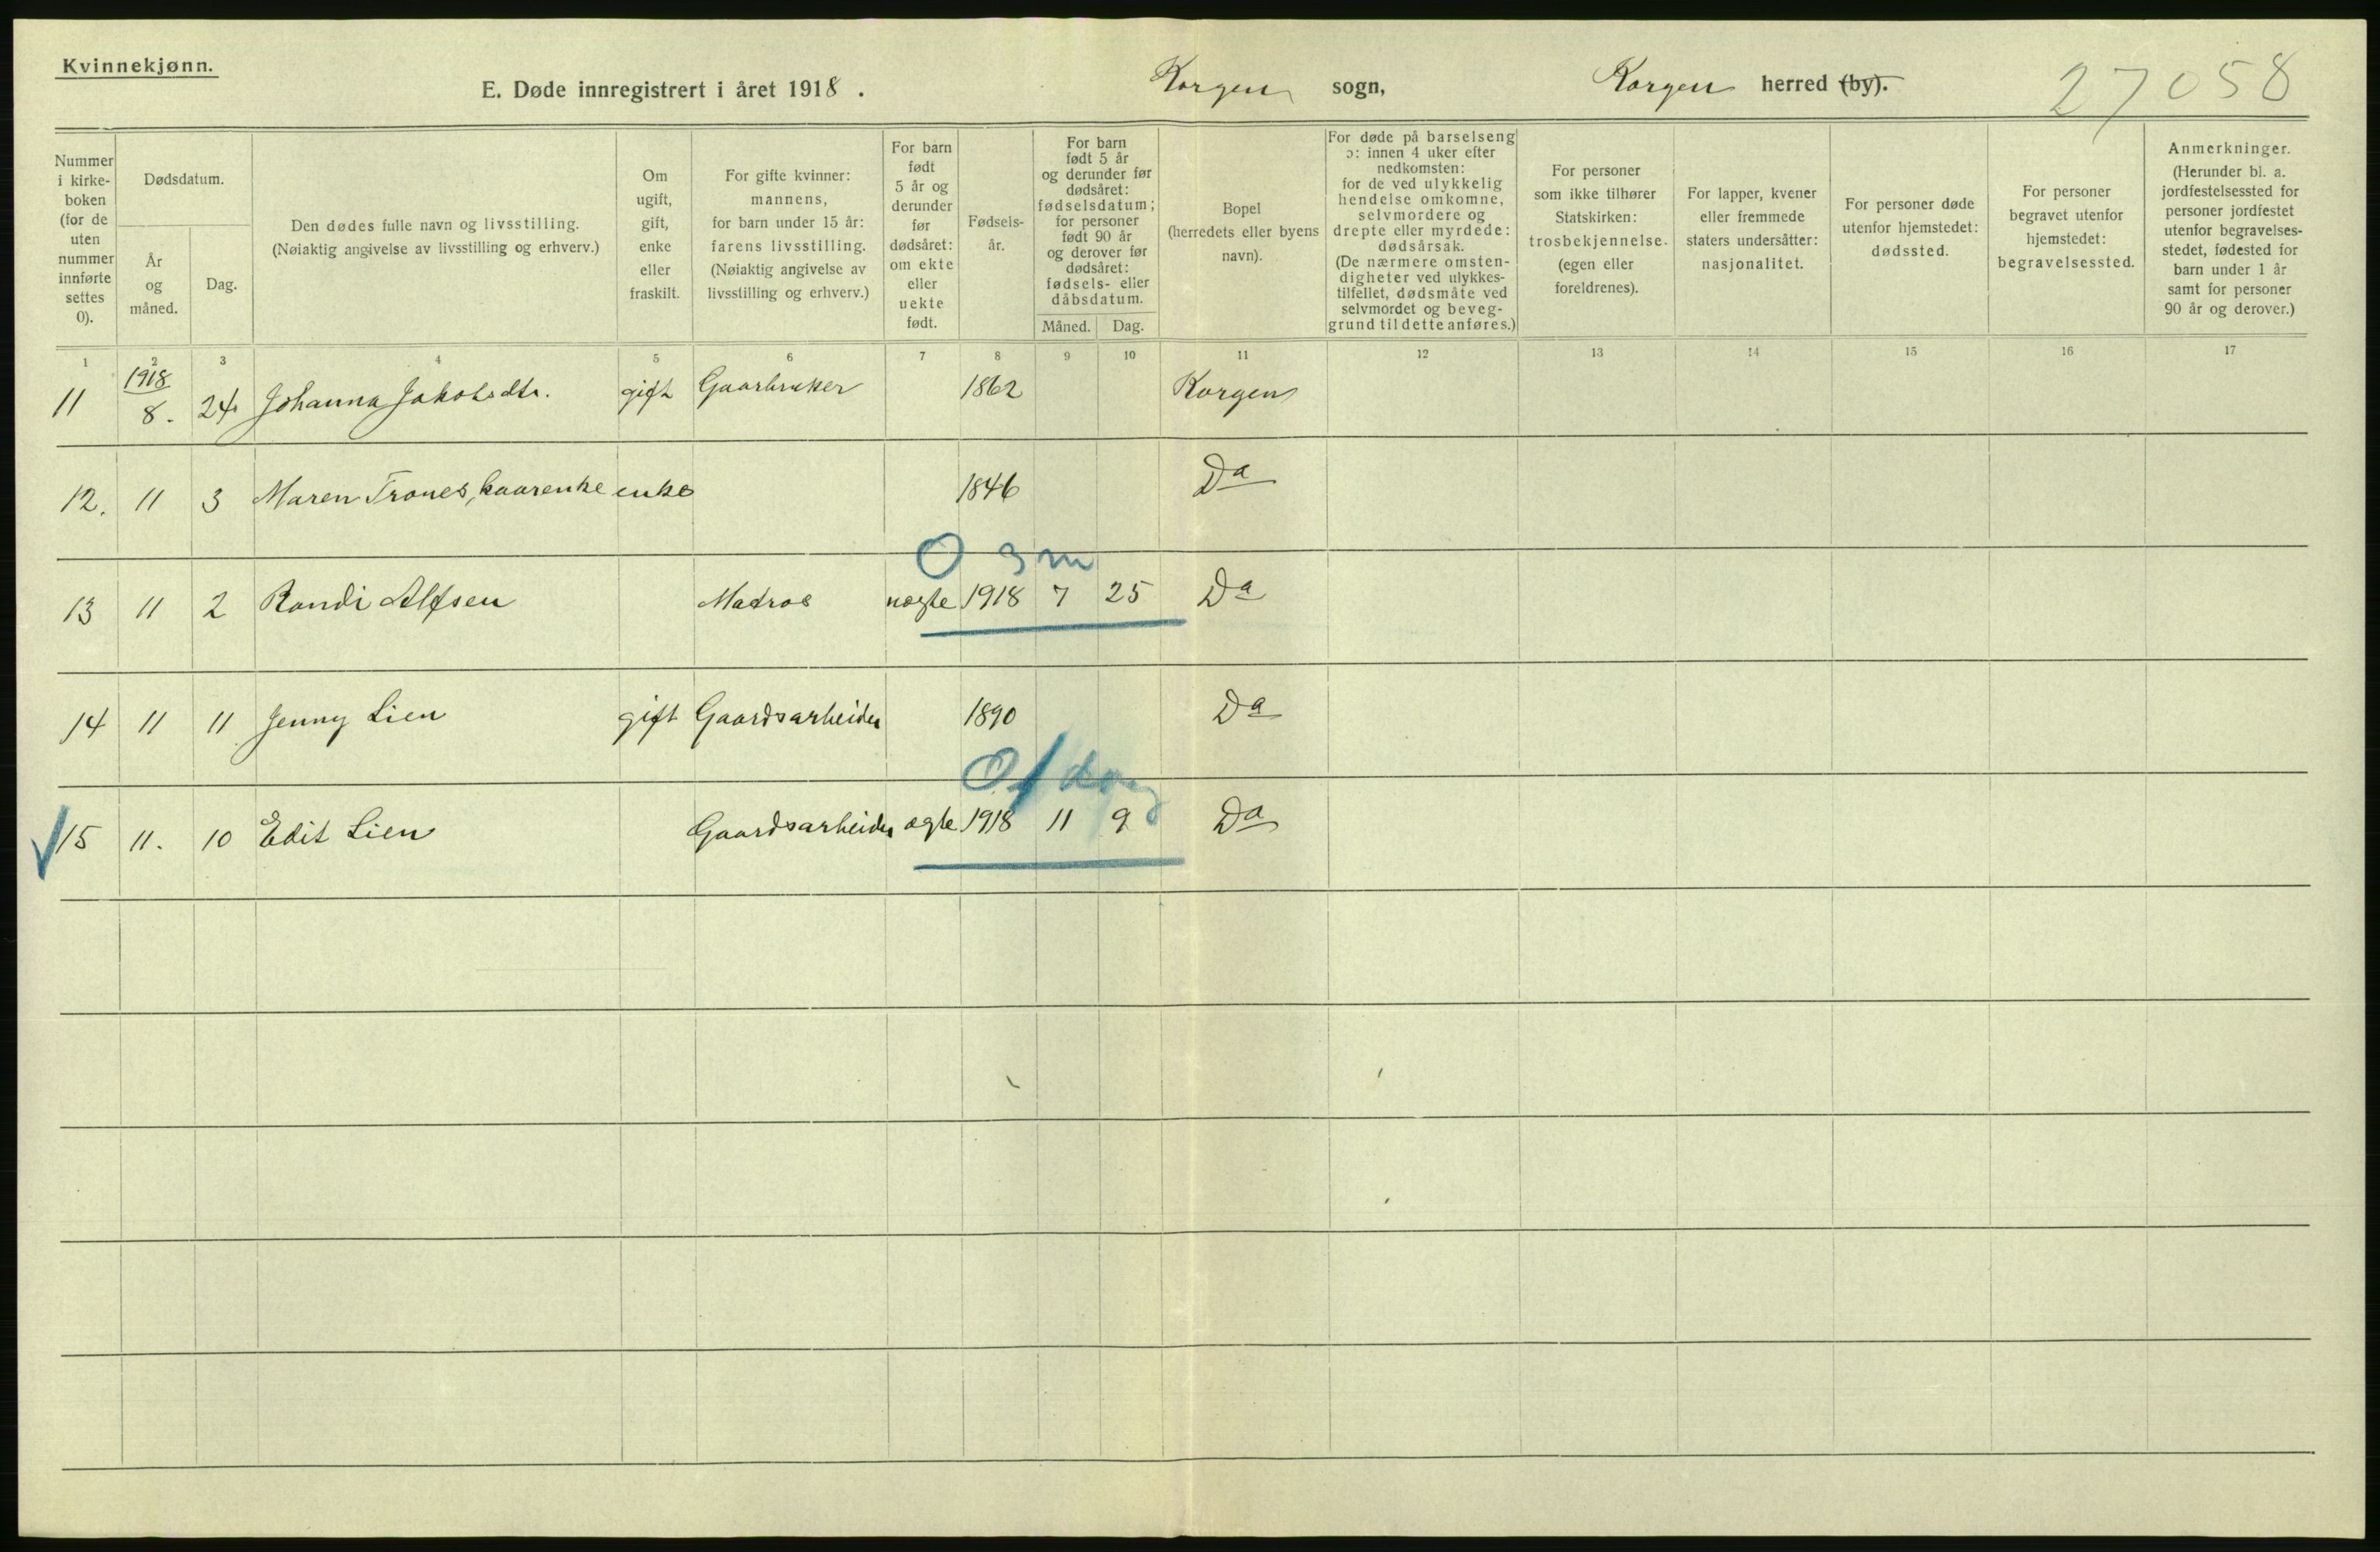 Kvinnekjønn.
E. Døde innregistrert i året 1918. Korgen sogn, Korgen herred (by). 27058
Nummer i kirke-boken (for de uten nummer innførte settes 0).
Dødsdatum.
År og måned.
Dag.
Den dødes fulle navn og livsstilling. (Nøiaktig angivelse av livsstilling og erhverv.)
Om ugift, gift, enke eller fraskilt.
For gifte kvinner: mannens, for barn under 15 år: farens livsstilling. (Nøiaktig angivelse av livsstilling og erhverv.)
For barn født 5 år og derunder før dødsåret: om ekte eller uekte født.
Fødsels-år.
For barn født 5 år og derunder før dødsåret: fødselsdatum; for personer født 90 år og derover før dødsåret: fødsels- eller dåbsdatum.
Måned. Dag.
Bopel (herredets eller byens navn).
For døde på barselseng ɔ: innen 4 uker efter nedkomsten: for de ved ulykkelig hendelse omkomne, selvmordere og drepte eller myrdede: dødsårsak. (De nærmere omsten-digheter ved ulykkes-tilfellet, dødsmåte ved selvmordet og beveg-grund til dette anføres.)
For personer som ikke tilhører Statskirken: trosbekjennelse. (egen eller foreldrenes).
For lapper, kvener eller fremmede staters undersåtter: nasjonalitet.
For personer døde utenfor hjemstedet: dødssted.
For personer begravet utenfor hjemstedet: begravelsessted.
Anmerkninger. (Herunder bl. a. jordfestelsessted for personer jordfestet utenfor begravelses-stedet, fødested for barn under 1 år samt for personer 90 år og derover.)
1 2 3 4 5 6 7 8 9 10 11 12 13 14 15 16 17
11 1918 8. 24. Johanna Jakobsdtr. gift Gaarbruker 1862 Korgen
12. 11 3 Maren Trones, kaarenke enke 1846 Da
0 3 m
13 11 2 Randi Alfsen Matros uegte 1918 7 25 Da
14 11 11 Jenny Lien gift Gaardsarbeider 1890 Da
0 1 dag
15 11. 10 Edit Lien Gaardsarbeider egte 1918 11 9 Da